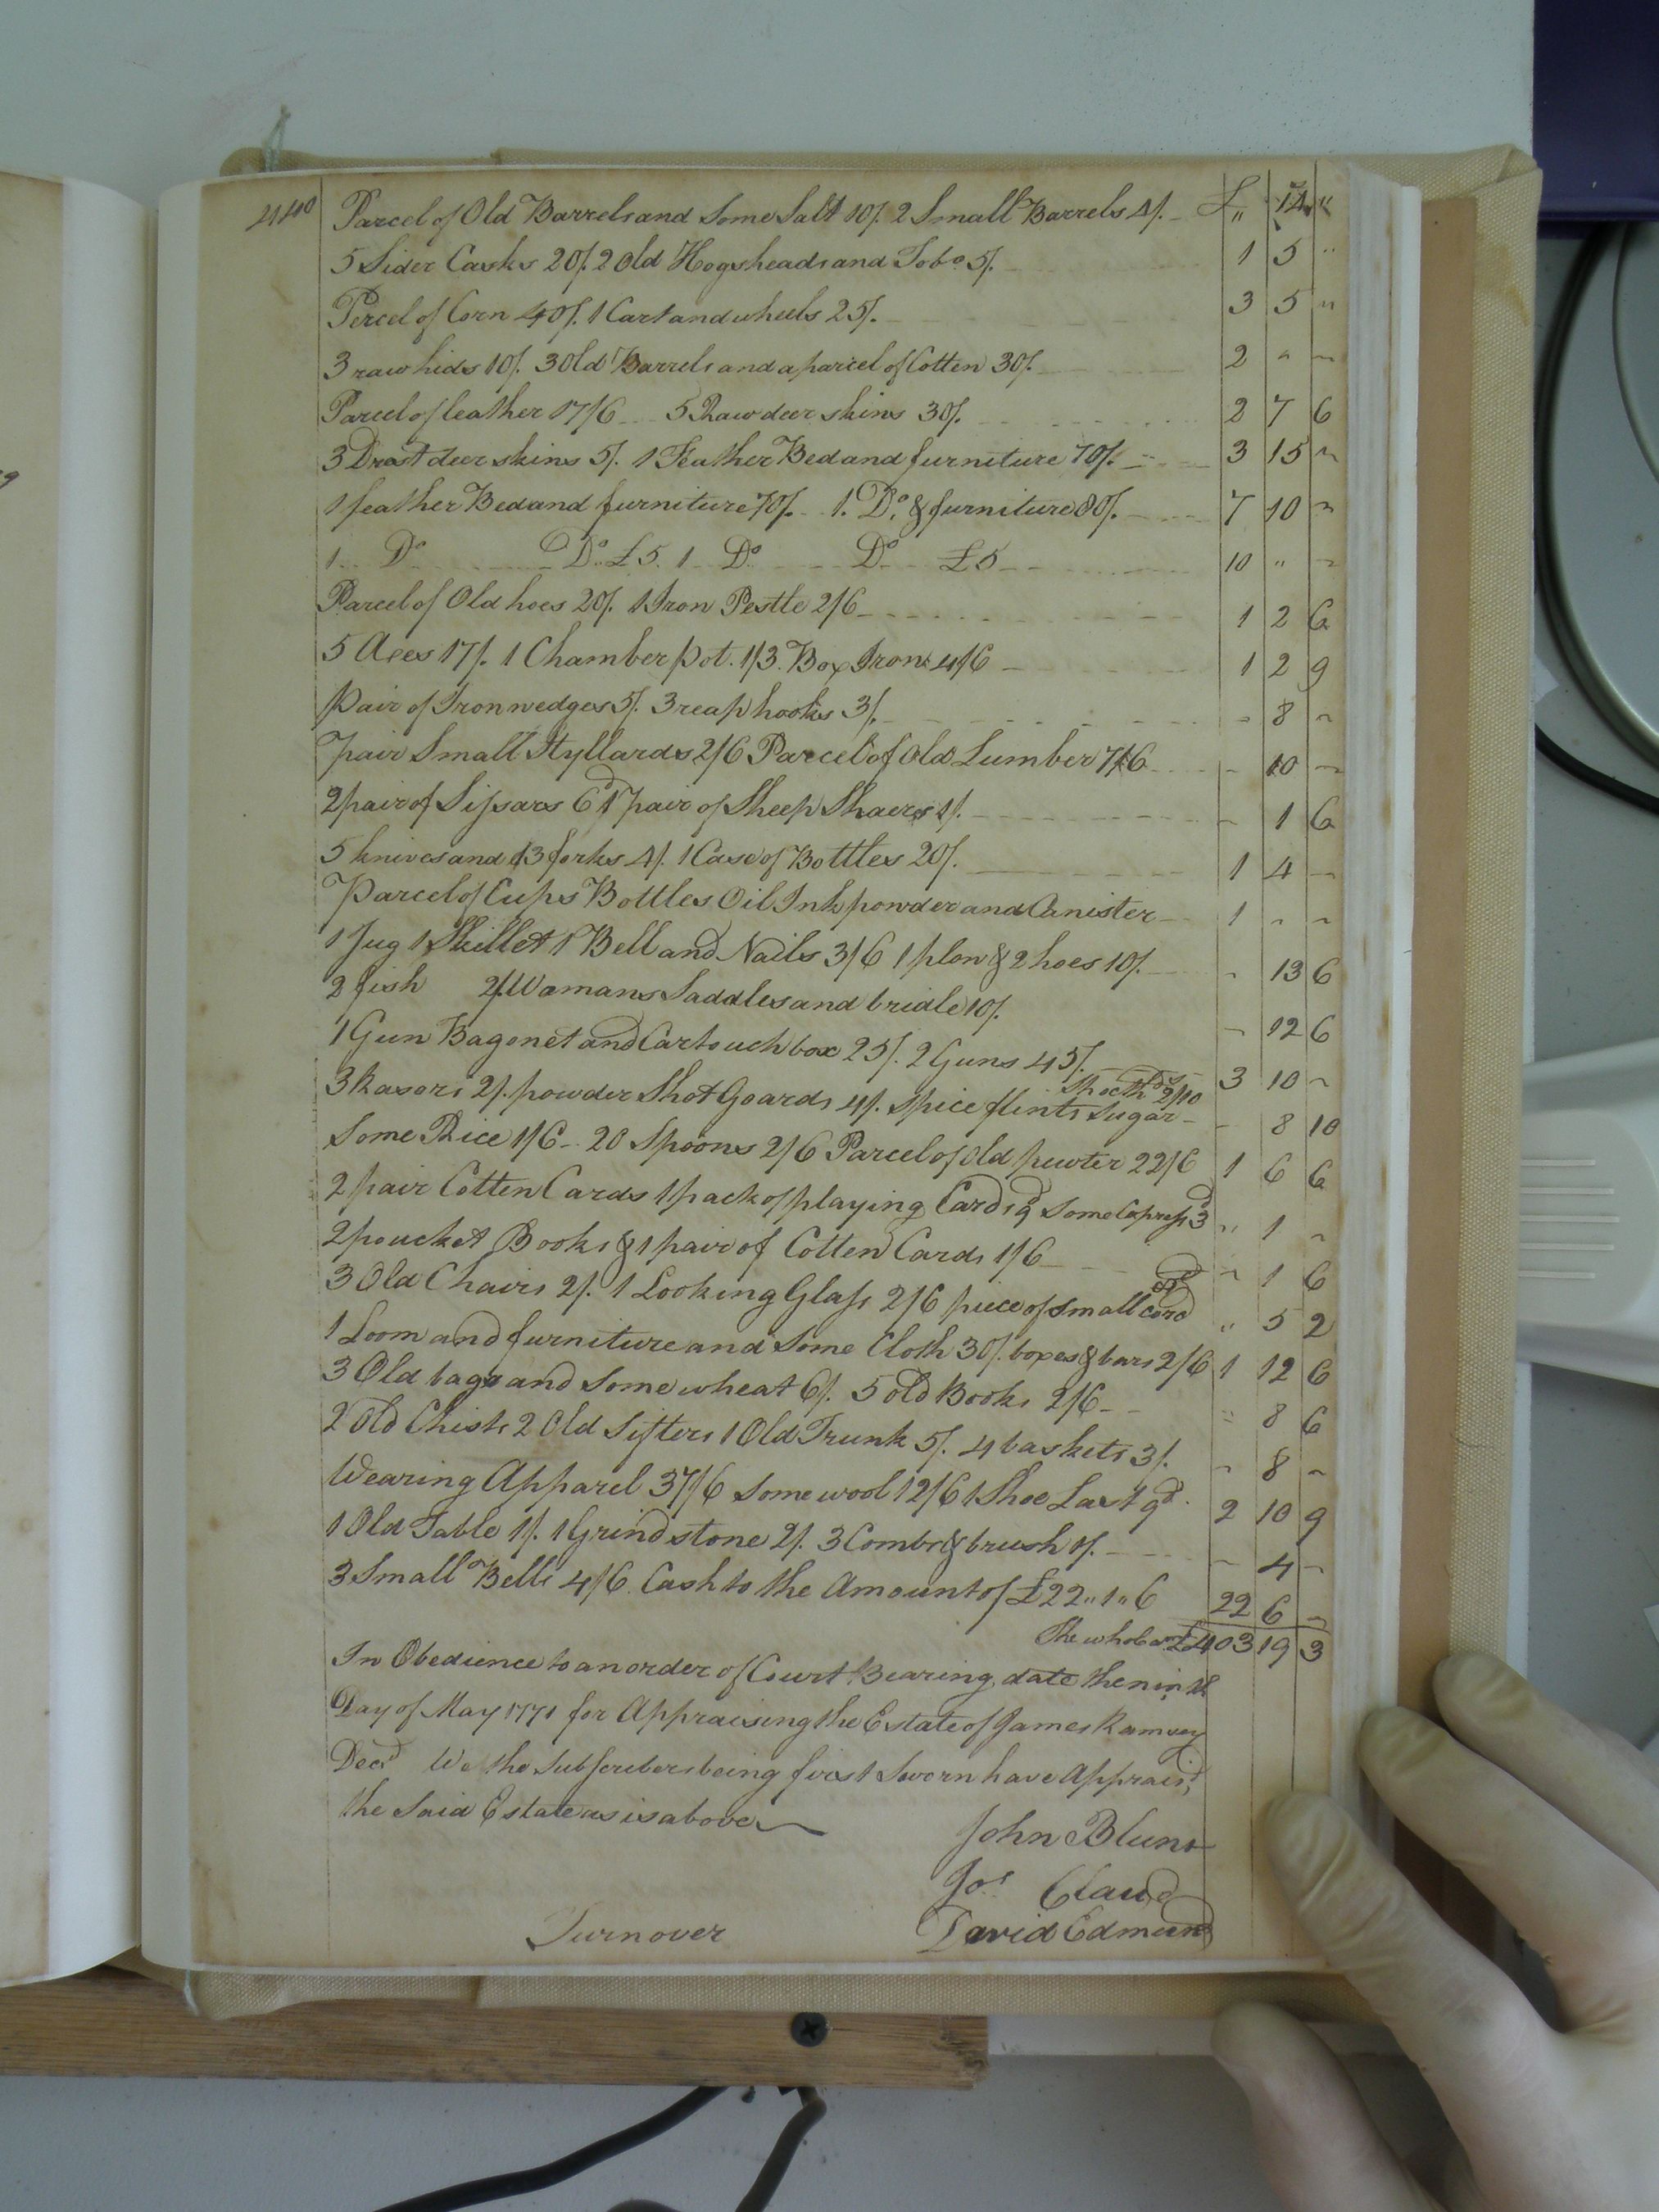 440 Parcel of Old Barrels and Some Salt 10/. 2 Small Barrels 4/. £ " 14 "
5 Sider Casks 20/. 2 Old Hogsheads and Tobo 5/. 1 5 "
Percel of Corn 40/. 1 Cart and wheels 25/. 3 5 "
3 raw hids 10/. 3 Old Barrels and a parcel of Cotten 30/. 2 " "
Parcel of leather 17/6 5 Raw deer skins 30/. 2 7 6
3 Drest deer skins 5/. 1 Feather Bed and furniture 70/. 3 15 "
1 feather Bed and furniture 70/. 1. Do. & furniture 80/. 7 10 "
1 Do Do £5. 1 Do Do £5 10 " "
Parcel of Old hoes 20/. 1 Iron Pestle 2/6 1 2 6
5 Axes 17/. 1 Chamber pot. 1/3. Box Irons 4/6 1 2 9
Pair of Iron wedges 5/. 3 reap hooks 3/. - 8 "
pair Small Styllards 2/6 Parcel of Old Lumber 7/6 - 10 -
2 pair of Sissars 6d 1 pair of Sheep Shaers 1/. - 1 6
5 knives and 13 forks 4/. 1 Case of Bottles 20/. 1 4 -
Parcel of Cups Bottles Oil Ink powder and Canister 1 - -
1 Jug 1 Skillet 1 Bell and Nails 3/6 1 plow & 2 hoes 10/. - 13 6
2 fish 2/ Womans Saddles and bridle 10/. - 12 6
1 Gun Bagonet and Cartouch box 25/. 2 Guns 45/. 3 10 -
3 Rasors 2/. powder Shot Goards 4/. Spice flints Sugar - 2/10 - 8 10
Some Rice 1/6 - 20 Spoons 2/6 Parcel of old pewter 22/6 1 6 6
2 pair Cotten Cards 1 pack of playing Cards 9d Some 3d " 1 -
2 poucket Books & 1 pair of Cotten Cards 1/6 - 1 6
3 Old Chairs 2/. 1 Looking Glass 2/6 piece of small cord 8d " 5 2
1 Loom and furniture and Some Cloth 30/. boxes & bars 2/6 1 12 6
3 Old bags and Some wheat 6/. 5 old Books 2/6 - " 8 6
2 Old Chists 2 Old Sifters 1 Old Trunk 5/. 4 baskets 3/. - 8 -
Wearing Apparel 37/6 Some wool 12/6 1 Shoe Last 9d. 2 10 9
1 Old Table 1/. 1 Grindstone 2/. 3 Combs & brush 1/. - 4 -
3 Small Bells 4/6. Cash to the Amount of £22 " 1 " 6 22 6 -
The whole amt £403 19 3
In Obedience to an order of Court Bearing date the ninth
Day of May 1771 for Appraising the Estate of James Ramsey
Decd We the Subscribers being first Sworn have Apprais'd
the Said Estate as is above
John Blunt
Jos Claud
David Edmunds
Turnover